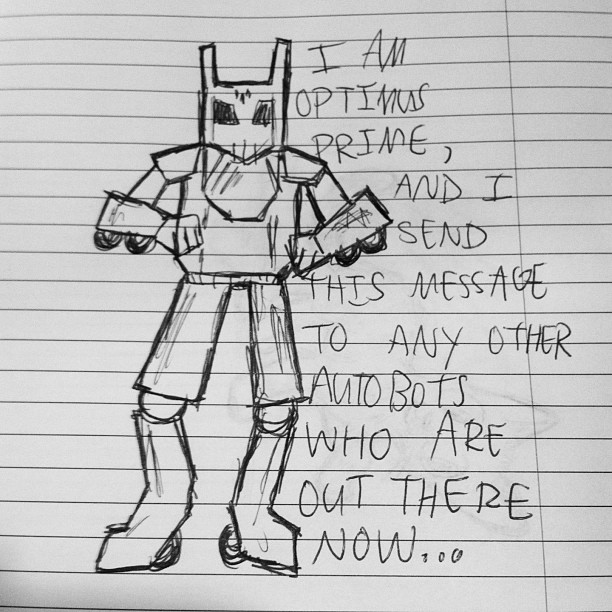 I AM
OPTIMUS
PRIME,
AND I
SEND
THIS MESSAGE
TO ANY OTHER
AUTOBOTS
WHO ARE
OUT THERE
NOW...